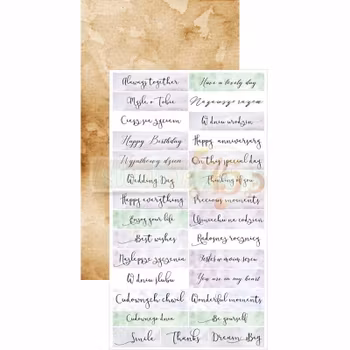 Always together
Have a lovely day
Myślę o Tobie
Najlepsze razem
W dniu urodzin
Happy Birthday
Happy anniversary
Wyjątkowy dzień
On this special day
Wedding Day
Thinking of you
Happy everything
Precious moments
Enjoy your life
Uśmiechu na co dzień
Best wishes
Radosnej rocznicy
Najlepsze życzenia
Jesteś w moim sercu
W dniu ślubu
You are in my heart
Cudownych chwil
Wonderful moments
Cudownego dnia
Be yourself
Smile
Thanks
Dream Big